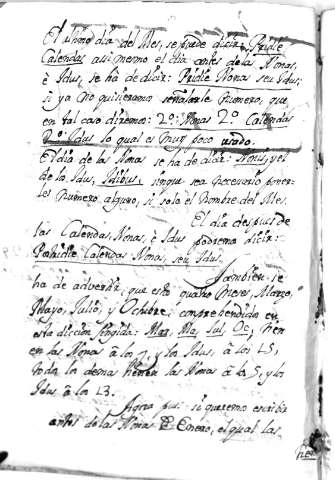 El ultimo dia del Mes, se puede dezir, Pridie
Calendas asi mesmo el dia antes de las Nonas,
è Idus, se ha de dicir: Pridie Nonas seu Idus;
si ya no quisieramos señalarle Numero, que
en tal caso diremos: 2º: Nonas 2º Calendas
2º Idus lo qual es muy poco usado.
El dia de las Nonas se ha de dicir: Nonis, y el
de las Idus, Idibus sin que sea necesario poner-
les Numero alguno, si solo el Nombre del Mes.
El dia despues de
las Calendas, Nonas, è Idus podremos dicir:
Postridie Calendas Nonas, seu Idus.
Tambien se
ha de advertir, que estos quatro Meses, Marzo,
Mayo, Julio, y Octubre; comprehendidos en
esta diccion fingida: Mar, Ma, Iul, Oc; tienen
en las Nonas à los 7, y los Idus, à los 15,
todos los demas tienen las Nonas à los 5, y los
Idus à los 13.
Agora pues si queremos escribir
antes de las Nonas de Enero, el qual las